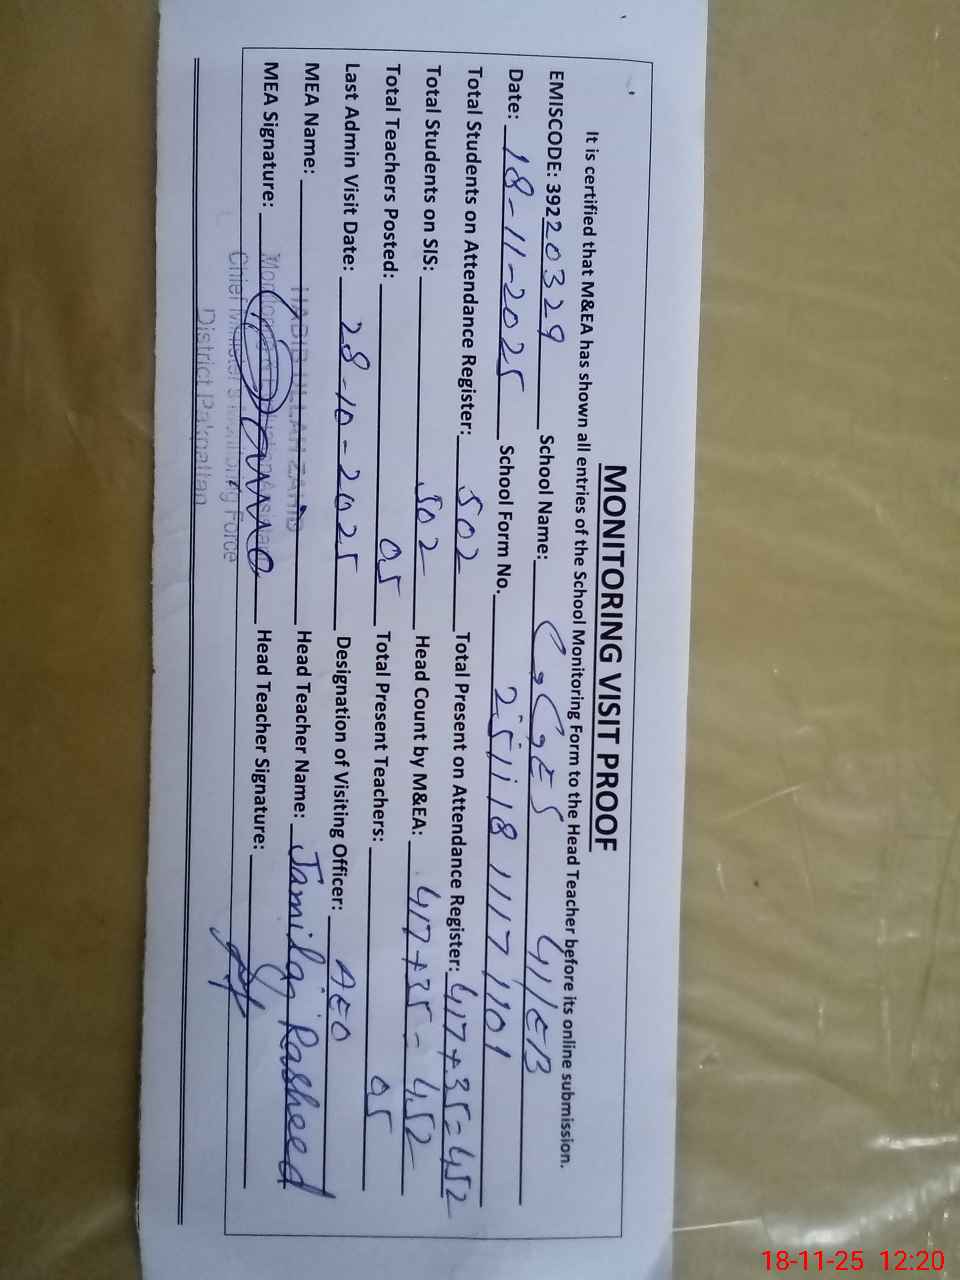 MONITORING VISIT PROOF
It is certified that M&EA has shown all entries of the School Monitoring Form to the Head Teacher before its online submission.
EMISCODE: 39220329 School Name: GGES 41/EB
Date: 18-11-2025 School Form No. 25111811171101
Total Students on Attendance Register: 502 Total Present on Attendance Register: 417+35=452
Total Students on SIS: 502 Head Count by M&EA: 417+35=452
Total Teachers Posted: 05 Total Present Teachers: 05
Last Admin Visit Date: 28-10-2025 Designation of Visiting Officer: AEO
MEA Name: Head Teacher Name: Jamilaj Rasheed
MEA Signature: Head Teacher Signature:
Chief Minister's Monitoring Force
District Pakpattan
18-11-25 12:20